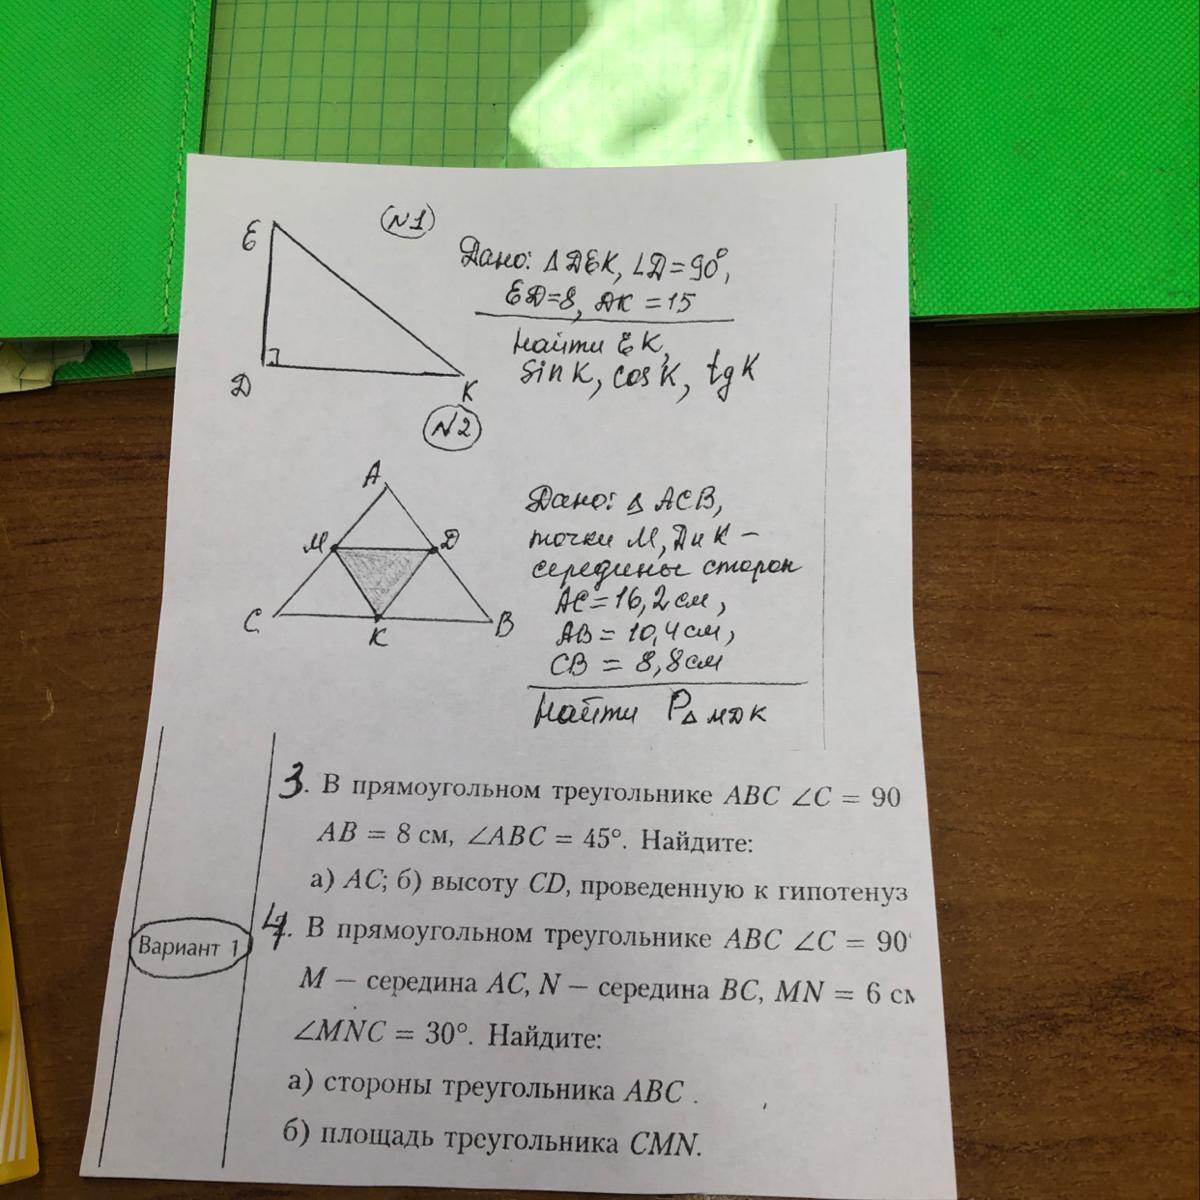 N1
E
Д
К
Дано: △ ДЕК, ∠Д=90°,
ЕД=8, ДК =15
Найти ЕК,
sin К, cos К, tg К
N2
А
М
Д
С
К
В
Дано: △ АСВ,
точки М, Д и К –
середины сторон
АС=16,2 см,
АВ = 10,4 см,
СВ = 8,8 см
Найти P△ МДК
3. В прямоугольном треугольнике ABC ∠C = 90
AB = 8 см, ∠ABC = 45°. Найдите:
а) AC; б) высоту CD, проведенную к гипотенуз
Вариант 1
4. В прямоугольном треугольнике ABC ∠C = 90°
M — середина AC, N — середина BC, MN = 6 см
∠MNC = 30°. Найдите:
а) стороны треугольника ABC .
б) площадь треугольника CMN.